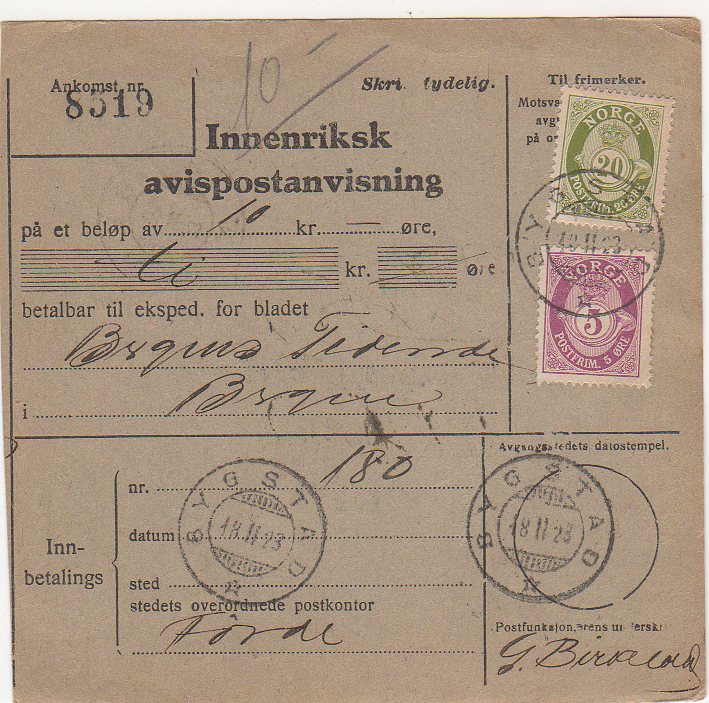 Ankomst nr.
8519
10 —
Skriv tydelig.
Til frimerker.
Innenriksk
avispostanvisning
på et beløp av 10 kr. — øre,
ti kr. øre
betalbar til eksped. for bladet
Bergens Tidende
i Bergen
NORGE
20
POSTFRIM. 20 ØRE
BYGSTAD
18 II 23
NORGE
5
POSTFRIM. 5 ØRE
Inn-
betalings
nr. 180
datum
sted
stedets overordnede postkontor
Førde
BYGSTAD
18 II 23
Avgangsstedets datostempel.
BYGSTAD
18 II 23
Postfunksjonærens underskr.
G.